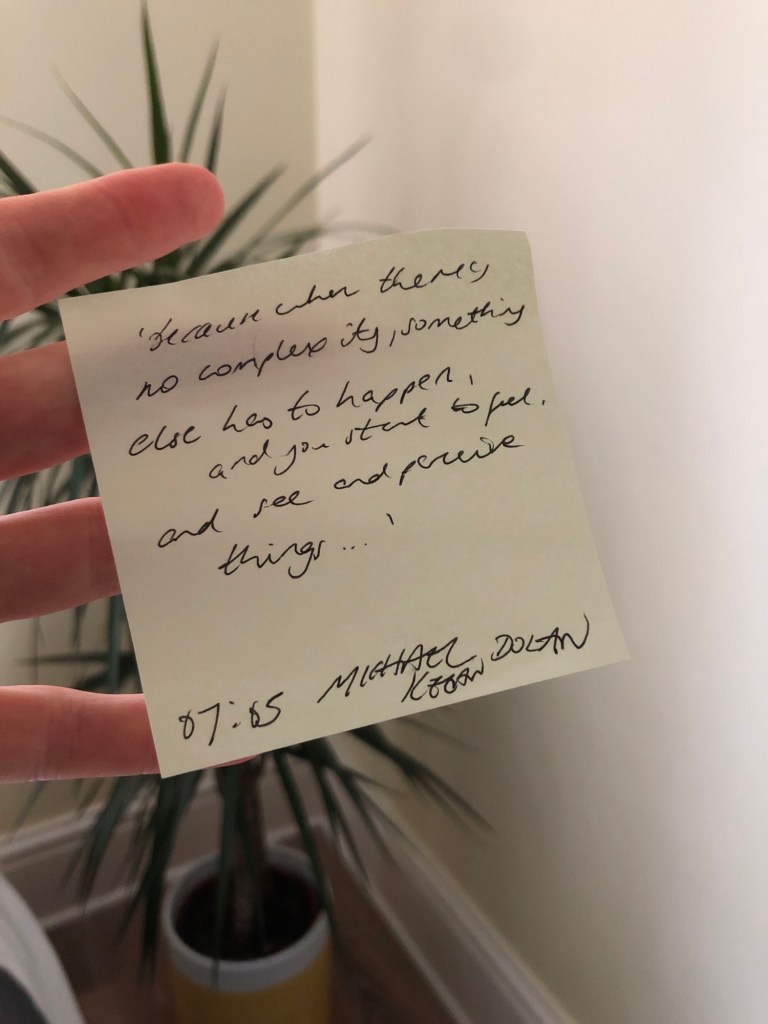 'Because when there's
no complexity, something
else has to happen,
and you start to feel.
and see and perceive
things...'
MICHAEL
KEEGAN DOLAN
07:05